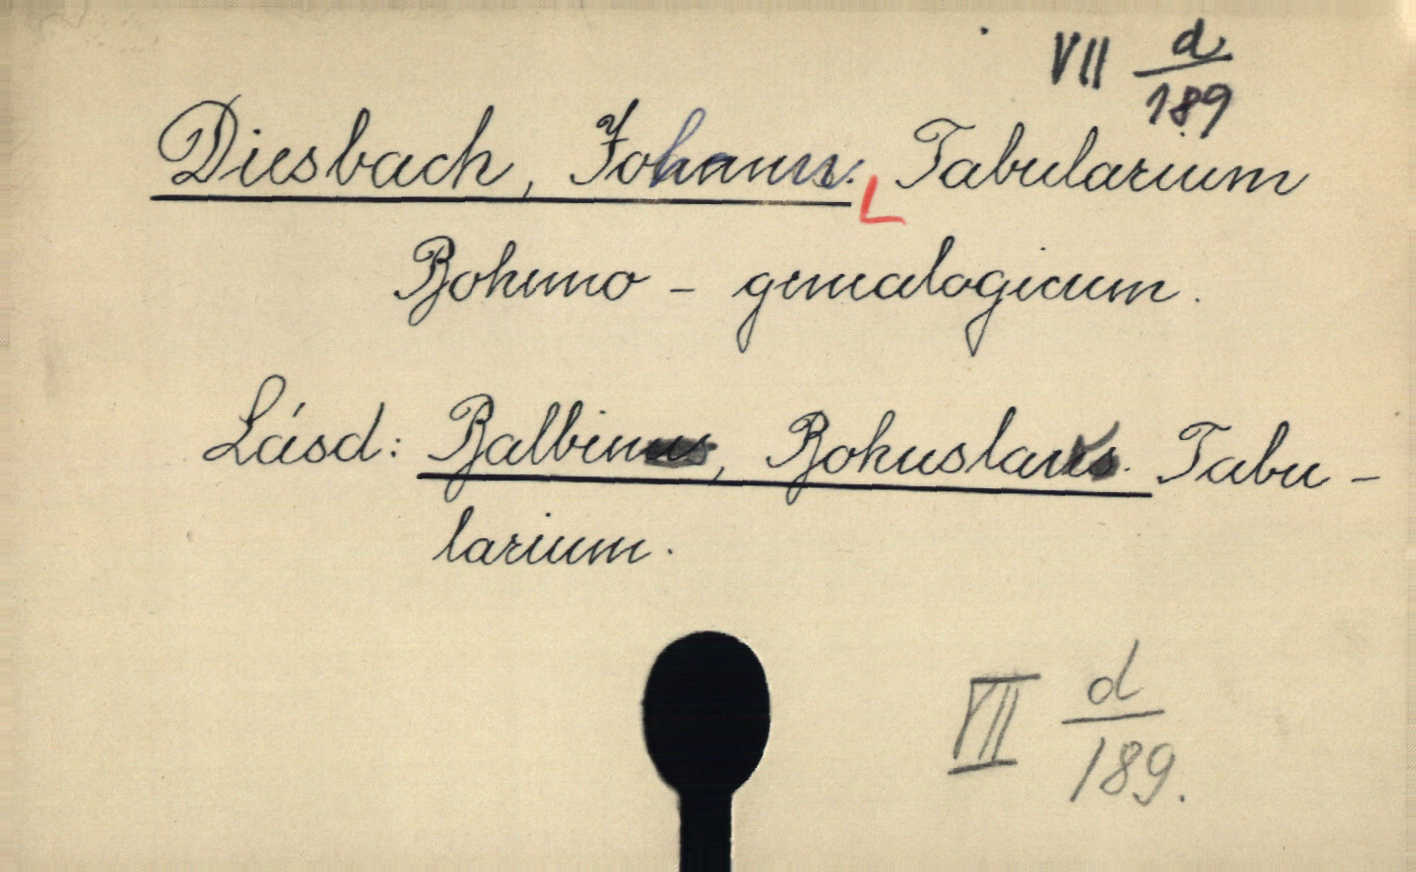 VII d/189
Diesbach, Johann. Tabularium
Bohemo - genealogicum.
Lásd: Balbin, Bohuslav. Tabu-
larium.
VII d/189.